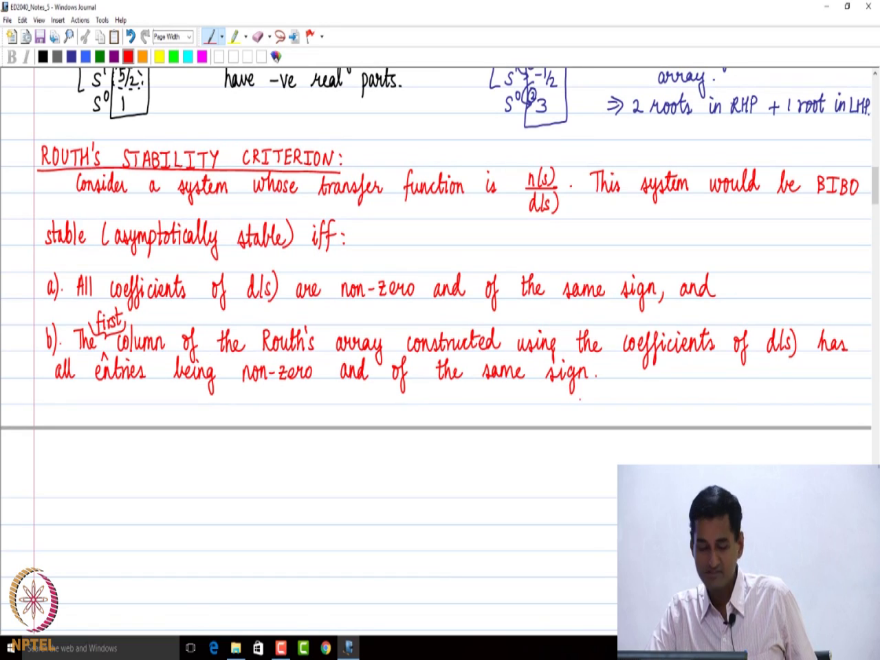 ED2040_Notes_5 - Windows Journal
File Edit View Insert Actions Tools Help
Page Width
B I
S¹ 5/2 have -ve real parts. S¹ -1/2 array.
S⁰ 1 S⁰ 3 ⇒ 2 roots in RHP + 1 root in LHP.
ROUTH'S STABILITY CRITERION:
Consider a system whose transfer function is n(s)/d(s). This system would be BIBO
stable (asymptotically stable) iff:
a). All coefficients of d(s) are non-zero and of the same sign, and
b). The first column of the Routh's array constructed using the coefficients of d(s) has
all entries being non-zero and of the same sign.
NPTEL
the web and Windows